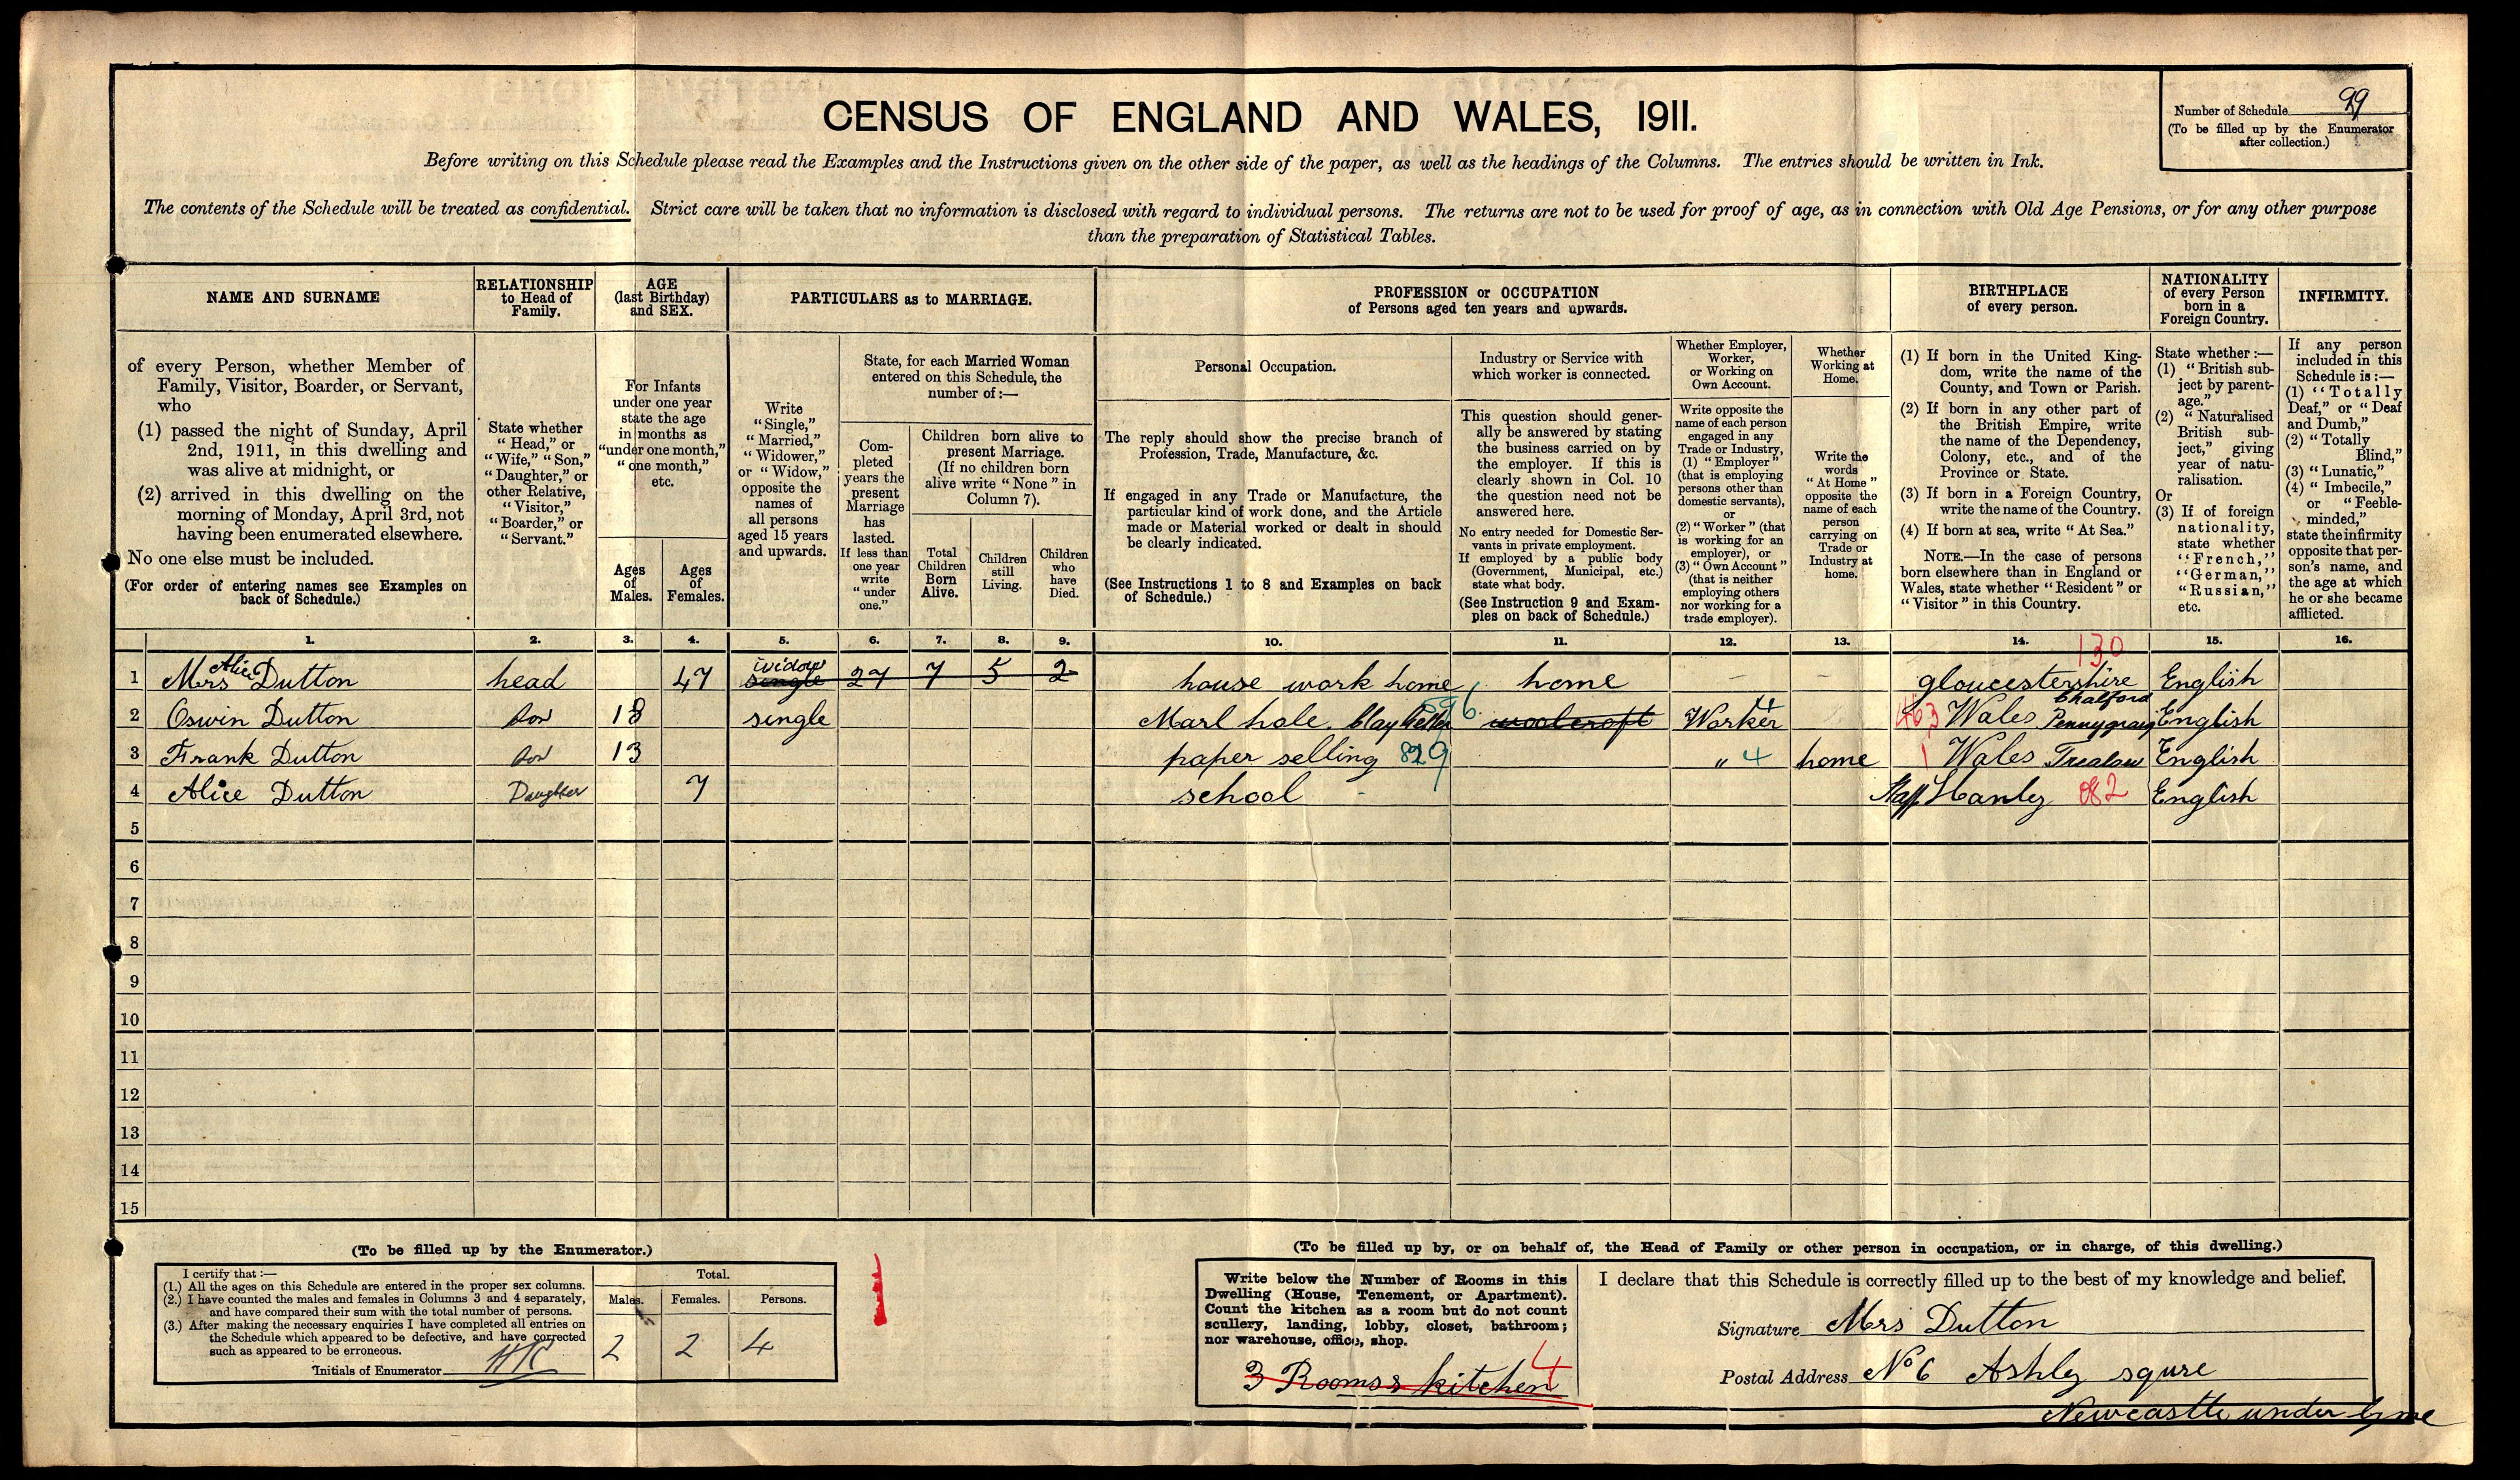 CENSUS OF ENGLAND AND WALES, 1911.
Number of Schedule 99
(To be filled up by the Enumerator
after collection.)
Before writing on this Schedule please read the Examples and the Instructions given on the other side of the paper, as well as the headings of the Columns. The entries should be written in Ink.
The contents of the Schedule will be treated as confidential. Strict care will be taken that no information is disclosed with regard to individual persons. The returns are not to be used for proof of age, as in connection with Old Age Pensions, or for any other purpose
than the preparation of Statistical Tables.
NAME AND SURNAME
of every Person, whether Member of
Family, Visitor, Boarder, or Servant,
who
(1) passed the night of Sunday, April
2nd, 1911, in this dwelling and
was alive at midnight, or
(2) arrived in this dwelling on the
morning of Monday, April 3rd, not
having been enumerated elsewhere.
No one else must be included.
(For order of entering names see Examples on
back of Schedule.)
RELATIONSHIP
to Head of
Family.
State whether
"Head," or
"Wife," "Son,"
"Daughter," or
other Relative,
"Visitor,"
"Boarder," or
"Servant."
AGE
(last Birthday)
and SEX.
For Infants
under one year
state the age
in months as
"under one month,"
"one month,"
etc.
Ages
of
Males.
Ages
of
Females.
PARTICULARS as to MARRIAGE.
Write
"Single,"
"Married,"
"Widower,"
or "Widow,"
opposite the
names of
all persons
aged 15 years
and upwards.
State, for each Married Woman
entered on this Schedule, the
number of:—
Com-
pleted
years the
present
Marriage
has
lasted.
If less than
one year
write
"under
one."
Children born alive to
present Marriage.
(If no children born
alive write "None" in
Column 7).
Total
Children
Born
Alive.
Children
still
Living.
Children
who
have
Died.
PROFESSION or OCCUPATION
of Persons aged ten years and upwards.
Personal Occupation.
The reply should show the precise branch of
Profession, Trade, Manufacture, &c.
If engaged in any Trade or Manufacture, the
particular kind of work done, and the Article
made or Material worked or dealt in should
be clearly indicated.
(See Instructions 1 to 8 and Examples on back
of Schedule.)
Industry or Service with
which worker is connected.
This question should gener-
ally be answered by stating
the business carried on by
the employer. If this is
clearly shown in Col. 10
the question need not be
answered here.
No entry needed for Domestic Ser-
vants in private employment.
If employed by a public body
(Government, Municipal, etc.)
state what body.
(See Instruction 9 and Exam-
ples on back of Schedule.)
Whether Employer,
Worker,
or Working on
Own Account.
Write opposite the
name of each person
engaged in any
Trade or Industry,
(1) "Employer"
(that is employing
persons other than
domestic servants),
or
(2) "Worker" (that
is working for an
employer), or
(3) "Own Account"
(that is neither
employing others
nor working for a
trade employer).
Whether
Working at
Home.
Write the
words
"At Home"
opposite the
name of each
person
carrying on
Trade or
Industry at
home.
BIRTHPLACE
of every person.
(1) If born in the United King-
dom, write the name of the
County, and Town or Parish.
(2) If born in any other part of
the British Empire, write
the name of the Dependency,
Colony, etc., and of the
Province or State.
(3) If born in a Foreign Country,
write the name of the Country.
(4) If born at sea, write "At Sea."
NOTE.—In the case of persons
born elsewhere than in England or
Wales, state whether "Resident" or
"Visitor" in this Country.
NATIONALITY
of every Person
born in a
Foreign Country.
State whether :—
(1) "British sub-
ject by parent-
age."
(2) "Naturalised
British sub-
ject," giving
year of natu-
ralisation.
Or
(3) If of foreign
nationality,
state whether
"French,"
"German,"
"Russian,"
etc.
INFIRMITY.
If any person
included in this
Schedule is :—
(1) "Totally
Deaf," or "Deaf
and Dumb,"
(2) "Totally
Blind,"
(3) "Lunatic,"
(4) "Imbecile,"
or "Feeble-
minded,"
state the infirmity
opposite that per-
son's name, and
the age at which
he or she became
afflicted.
1. 2. 3. 4. 5. 6. 7. 8. 9. 10. 11. 12. 13. 14. 15. 16.
130
Alice widow
1 Mrs Dutton head 47 single 27 7 5 2 house work home home — — gloucestershire English
Chalford
2 Oswin Dutton son 18 single Marl hole Clay Getter 596 woolcroft Worker 4 463 Wales Pennygraig English
3 Frank Dutton son 13 paper selling 829 " 4 home 1 Wales Trealaw English
4 Alice Dutton Daughter 7 school - Staff Hanley 082 English
5
6
7
8
9
10
11
12
13
14
15
(To be filled up by the Enumerator.)
I certify that :—
(1.) All the ages on this Schedule are entered in the proper sex columns.
(2.) I have counted the males and females in Columns 3 and 4 separately,
and have compared their sum with the total number of persons.
(3.) After making the necessary enquiries I have completed all entries on
the Schedule which appeared to be defective, and have corrected
such as appeared to be erroneous.
Initials of Enumerator
Total.
Males. Females. Persons.
2 2 4
(To be filled up by, or on behalf of, the Head of Family or other person in occupation, or in charge, of this dwelling.)
Write below the Number of Rooms in this
Dwelling (House, Tenement, or Apartment).
Count the kitchen as a room but do not count
scullery, landing, lobby, closet, bathroom;
nor warehouse, office, shop.
3 Rooms & kitchen 4
I declare that this Schedule is correctly filled up to the best of my knowledge and belief.
Signature Mrs Dutton
Postal Address No 6 Ashley squre
Newcastle under Lyme